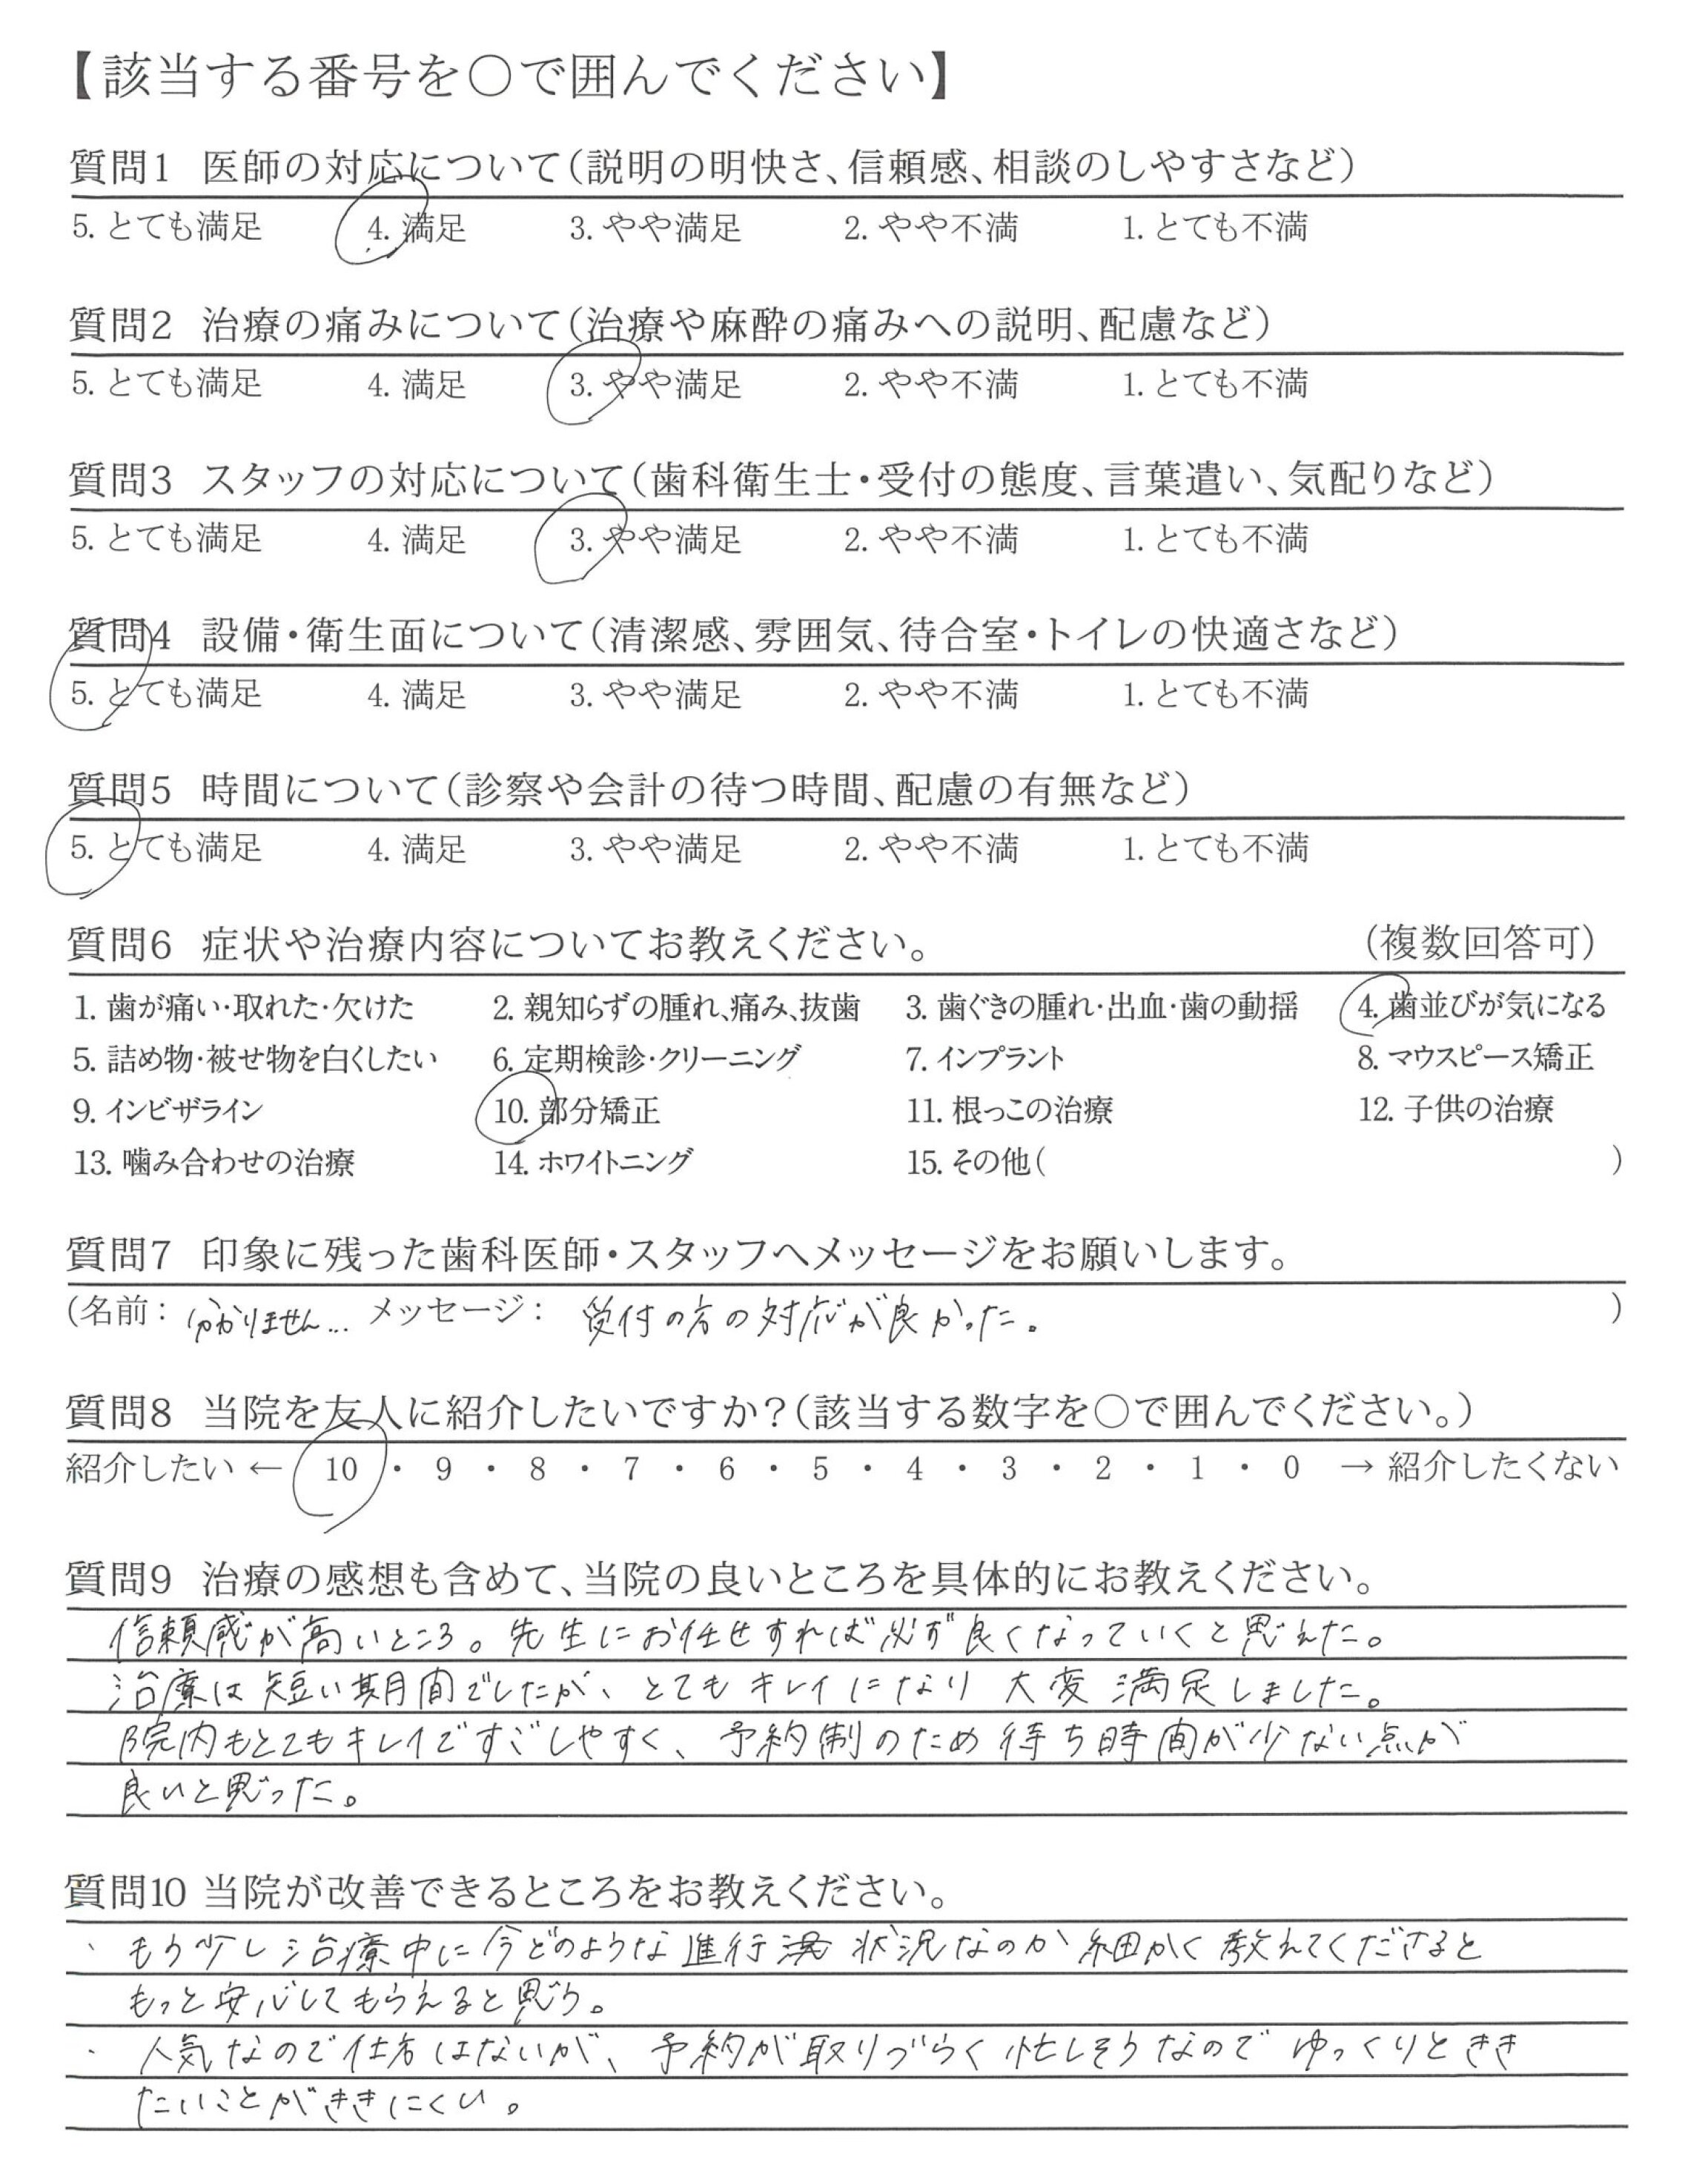 【該当する番号を〇で囲んでください】
質問1 医師の対応について（説明の明快さ、信頼感、相談のしやすさなど）
5. とても満足 4. 満足 3. やや満足 2. やや不満 1. とても不満
質問2 治療の痛みについて（治療や麻酔の痛みへの説明、配慮など）
5. とても満足 4. 満足 3. やや満足 2. やや不満 1. とても不満
質問3 スタッフの対応について（歯科衛生士・受付の態度、言葉遣い、気配りなど）
5. とても満足 4. 満足 3. やや満足 2. やや不満 1. とても不満
質問4 設備・衛生面について（清潔感、雰囲気、待合室・トイレの快適さなど）
5. とても満足 4. 満足 3. やや満足 2. やや不満 1. とても不満
質問5 時間について（診察や会計の待つ時間、配慮の有無など）
5. とても満足 4. 満足 3. やや満足 2. やや不満 1. とても不満
質問6 症状や治療内容についてお教えください。 （複数回答可）
1. 歯が痛い・取れた・欠けた 2. 親知らずの腫れ、痛み、抜歯 3. 歯ぐきの腫れ・出血・歯の動揺 4. 歯並びが気になる
5. 詰め物・被せ物を白くしたい 6. 定期検診・クリーニング 7. インプラント 8. マウスピース矯正
9. インビザライン 10. 部分矯正 11. 根っこの治療 12. 子供の治療
13. 噛み合わせの治療 14. ホワイトニング 15. その他（ ）
質問7 印象に残った歯科医師・スタッフへメッセージをお願いします。
（名前： 分かりません… メッセージ： 受付の方の対応が良かった。 ）
質問8 当院を友人に紹介したいですか？（該当する数字を〇で囲んでください。）
紹介したい ← 10 ・ 9 ・ 8 ・ 7 ・ 6 ・ 5 ・ 4 ・ 3 ・ 2 ・ 1 ・ 0 → 紹介したくない
質問9 治療の感想も含めて、当院の良いところを具体的にお教えください。
信頼感が高いところ。先生にお任せすれば必ず良くなっていくと思えた。
治療は短い期間でしたが、とてもキレイになり大変満足しました。
院内もとてもキレイですごしやすく、予約制のため待ち時間が少ない点が
良いと思った。
質問10 当院が改善できるところをお教えください。
・ もう少し治療中に今どのような進行状況なのか細かく教えてくださると
もっと安心してもらえると思う。
・ 人気なので仕方はないが、予約が取りづらく忙しそうなのでゆっくりときき
たいことがききにくい。